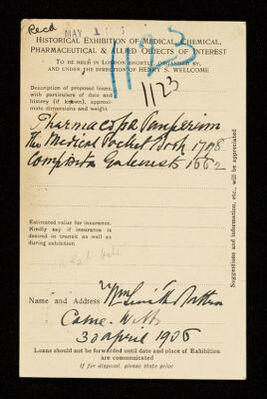 Recd
MAY 1
1123
HISTORICAL EXHIBITION OF MEDICAL, CHEMICAL,
PHARMACEUTICAL & ALLIED OBJECTS OF INTEREST
TO BE HELD IN LONDON SHORTLY, ORGANISED BY,
AND UNDER THE DIRECTION OF HENRY S. WELLCOME
1123
Description of proposed loans,
with particulars of date and
history (if known), approxi-
mate dimensions and weight
Pharmacopœa Pauperum
The Medical Pocket Book 1798
1662
Suggestions and information, etc., will be appreciated
Estimated value for insurance.
Kindly say if insurance is
desired in transit as well as
during exhibition
Name and Address Wm
Calne. Wilts
30 april 1906
Loans should not be forwarded until date and place of Exhibition
are communicated
If for disposal, please state price